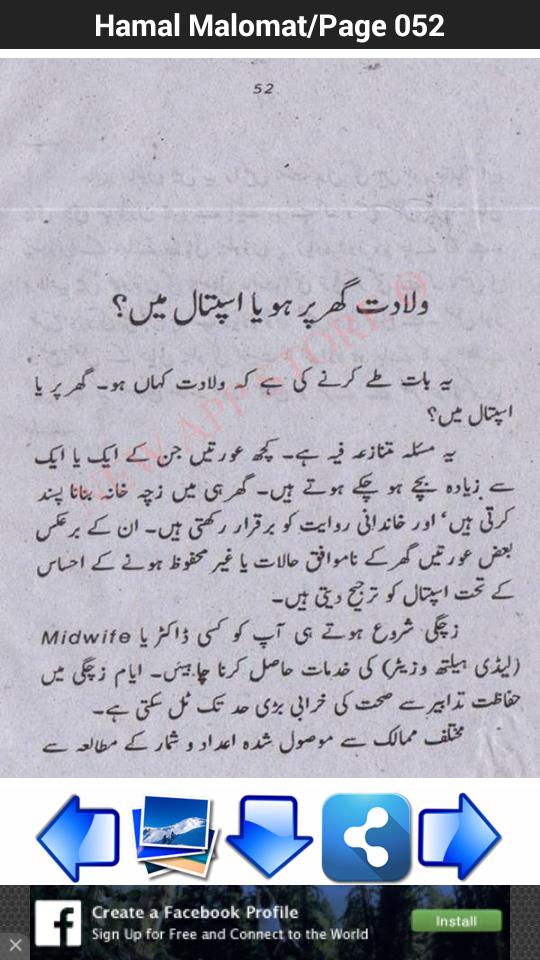 Hamal Malomat/Page 052
52
ولادت گھر پر ہو یا اسپتال میں؟
یہ بات طے کرنے کی ہے کہ ولادت کہاں ہو۔ گھر پر یا
اسپتال میں؟
یہ مسئلہ متنازعہ فیہ ہے۔ کچھ عورتیں جن کے ایک یا ایک
سے زیادہ بچے ہو چکے ہوتے ہیں۔ گھر ہی میں زچہ خانہ بنانا پسند
کرتی ہیں‘ اور خاندانی روایت کو برقرار رکھتی ہیں۔ ان کے برعکس
بعض عورتیں گھر کے ناموافق حالات یا غیر محفوظ ہونے کے احساس
کے تحت اسپتال کو ترجیح دیتی ہیں۔
زچگی شروع ہوتے ہی آپ کو کسی ڈاکٹر یا Midwife
(لیڈی ہیلتھ وزیٹر) کی خدمات حاصل کرنا چاہیئں۔ ایام زچگی میں
حفاظت تدابیر سے صحت کی خرابی بڑی حد تک ٹل سکتی ہے۔
مختلف ممالک سے موصول شدہ اعداد و شمار کے مطالعہ سے
NEW APP STORE ©
Create a Facebook Profile
Sign Up for Free and Connect to the World
Install